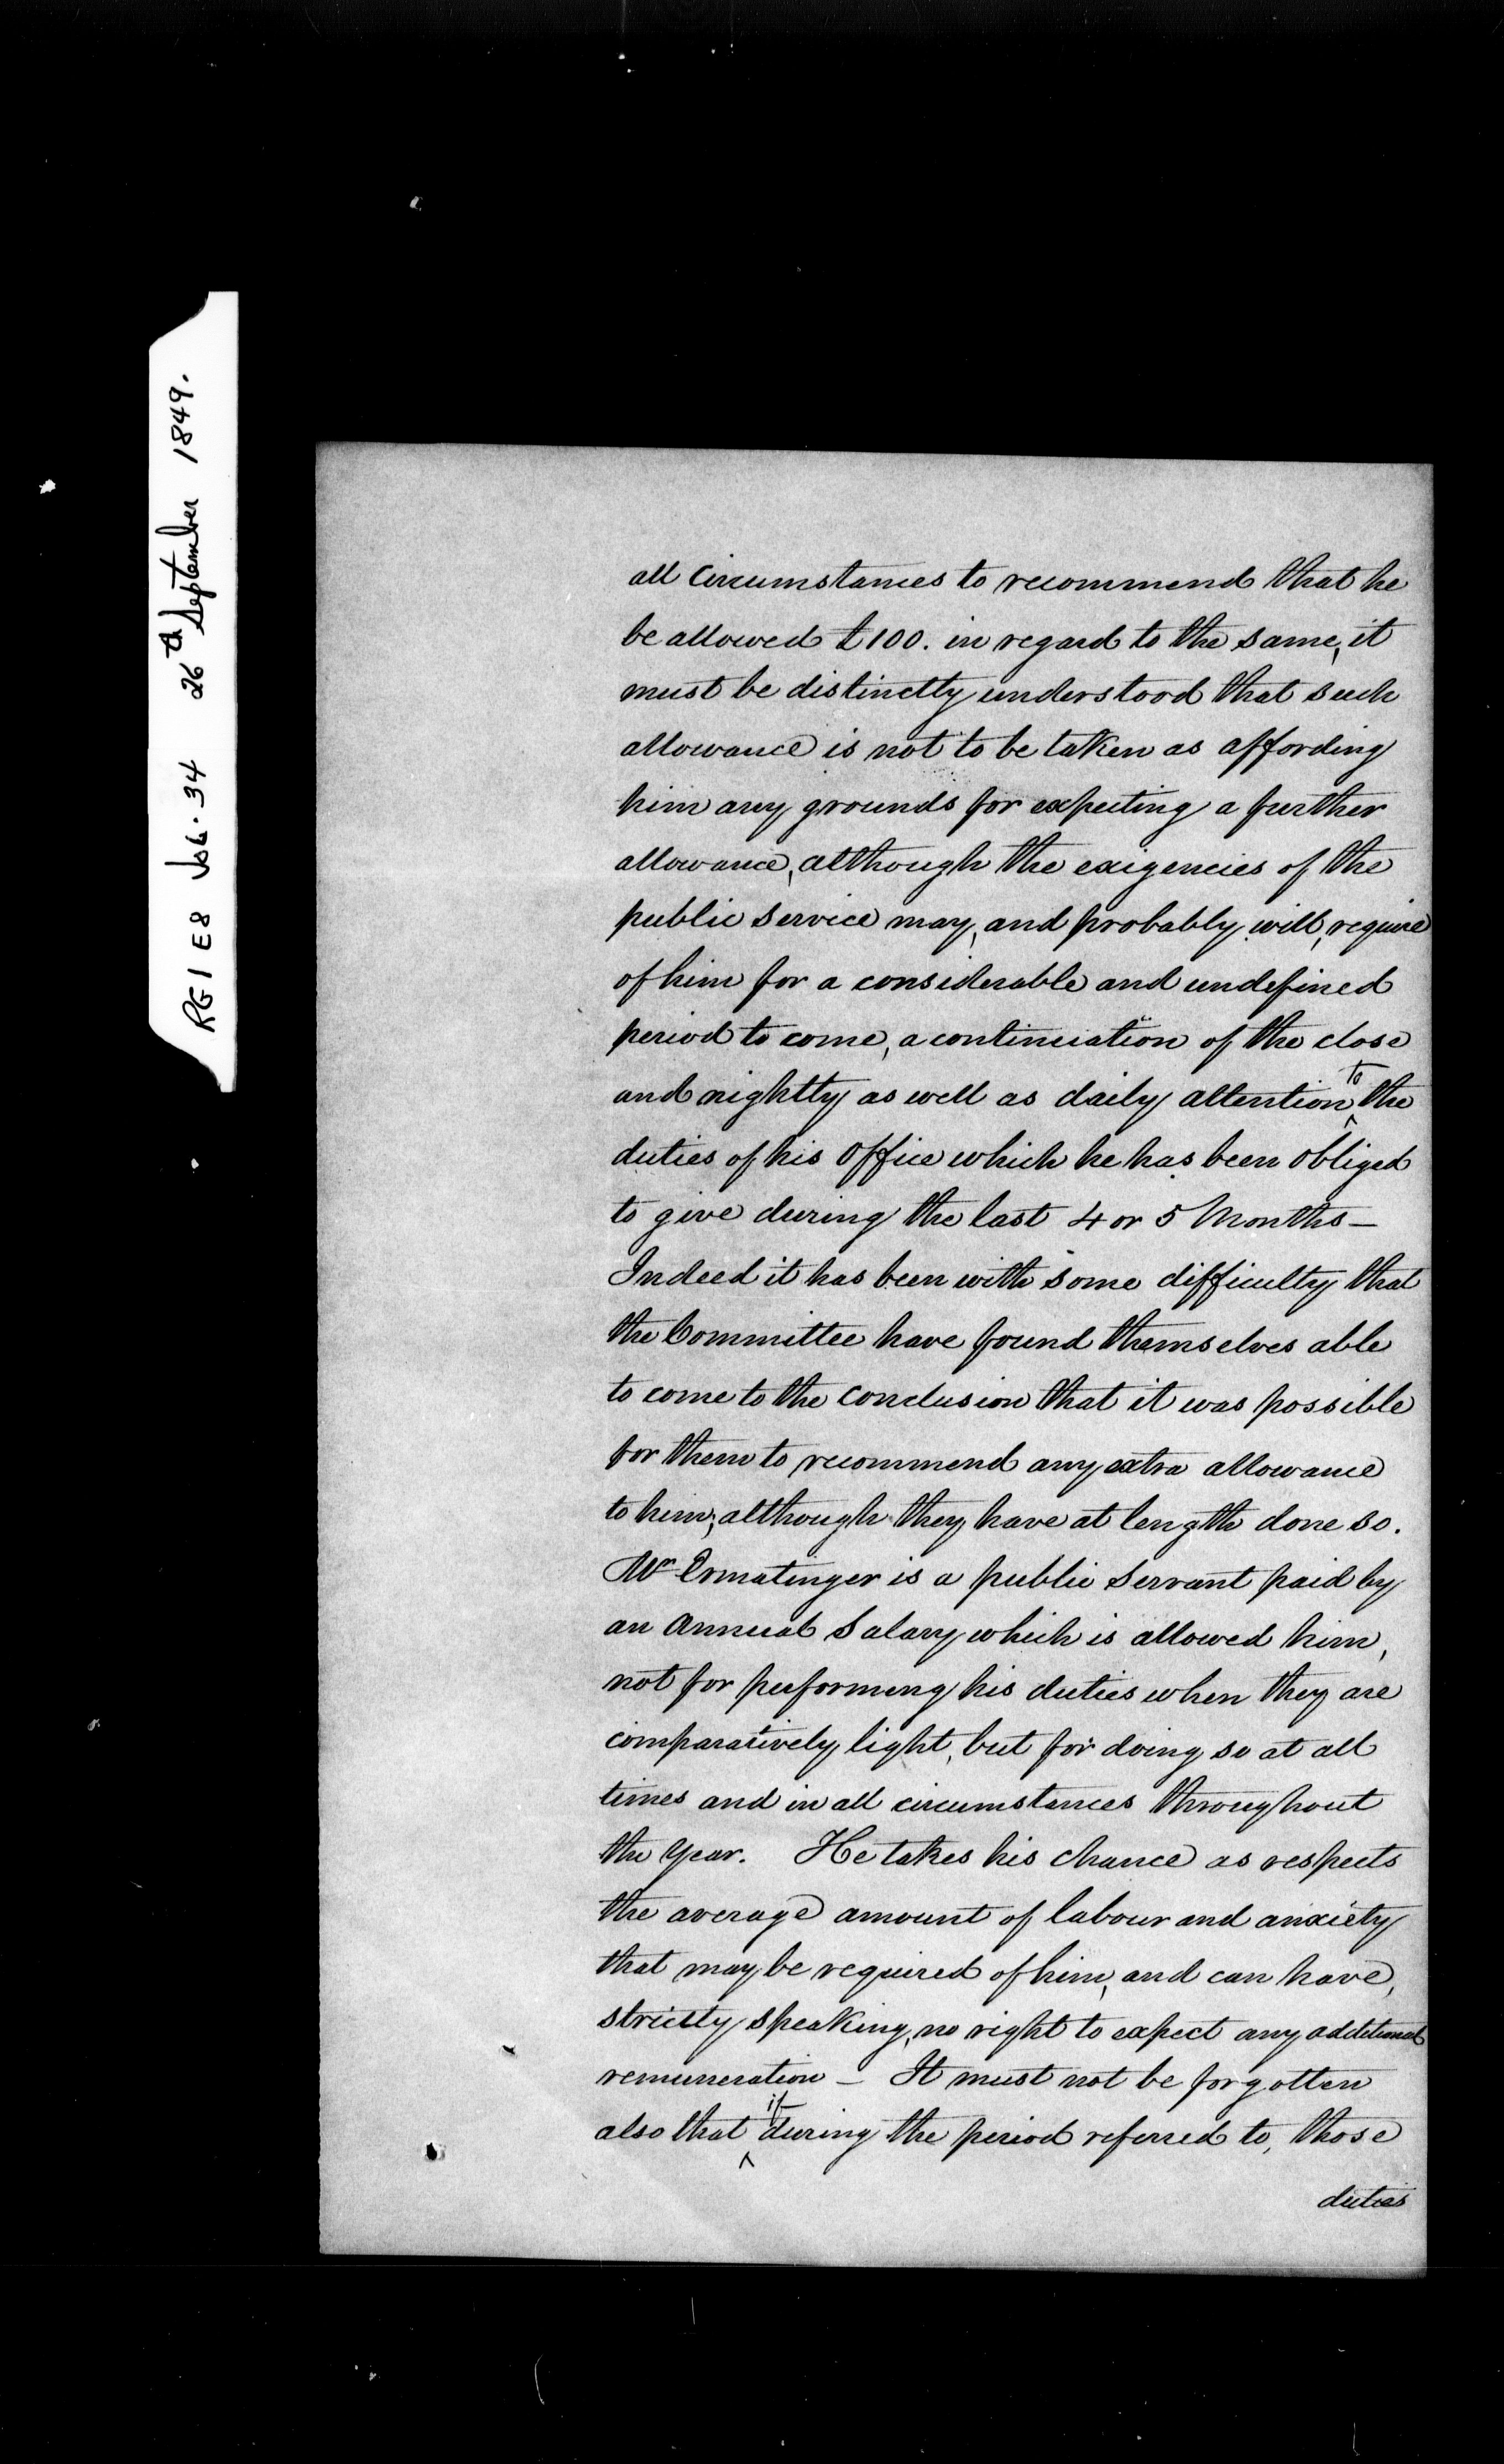 RG1 E8 Vol. 34 26th September 1849.
all Circumstances to recommend that he
be allowed £100. in regard to the same, it
must be distinctly understood that such
allowance is not to be taken as affording
him any grounds for expecting a further
allowance, although the exigencies of the
public Service may, and probably will, require
of him for a considerable and undefined
period to come, a continuation of the close
and nightly as well as daily attention to the
duties of his Office which he has been obliged
to give during the last 4 or 5 Months —
Indeed it has been with some difficulty that
the Committee have found themselves able
to come to the Conclusion that it was possible
for them to recommend any extra allowance
to him, although they have at length done so.
Mr Ermatinger is a public Servant paid by
an Annual Salary which is allowed him,
not for performing his duties when they are
comparatively light, but for doing so at all
times and in all circumstances throughout
the Year. He takes his chance as respects
the average amount of labour and anxiety
that may be required of him, and can have,
strictly speaking, no right to expect any additional
remuneration — It must not be forgotten
also that if during the period referred to, those
duties